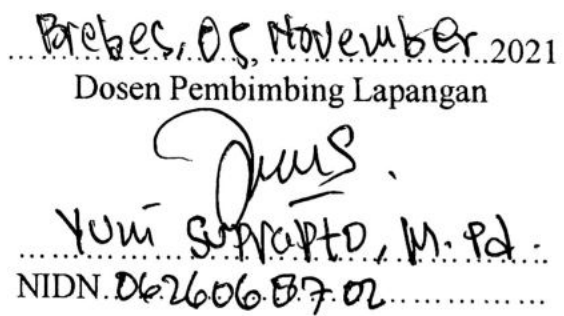 Brebes, 05, November 2021
Dosen Pembimbing Lapangan
Yuni Suprapto, M.Pd.
NIDN. 0626068702